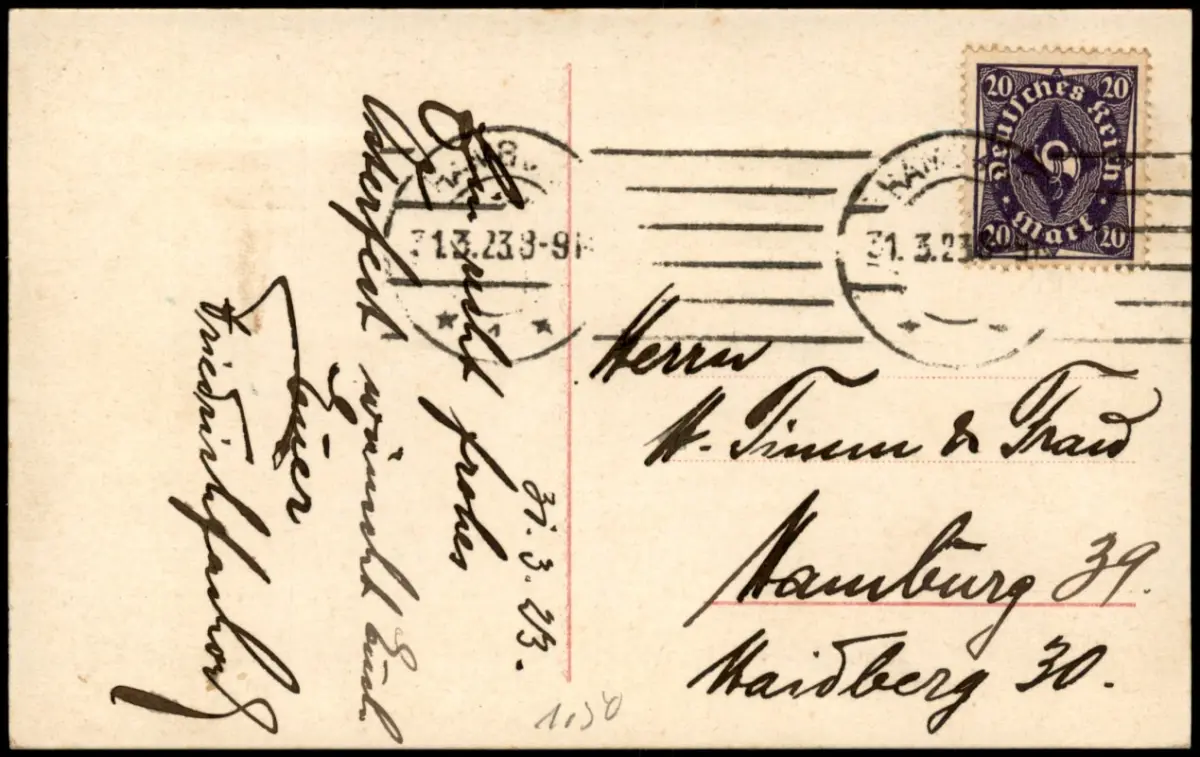 31.3.23.
Ein recht frohes
Osterfest wünscht Euch
Euer
HAMB
31.3.23.8-9
HAM
31.3.23
20 20
Deutsches Reich
20 Mark 20
Herrn
H. Timm & Frau
Hamburg 39.
Haidberg 30.
1,50